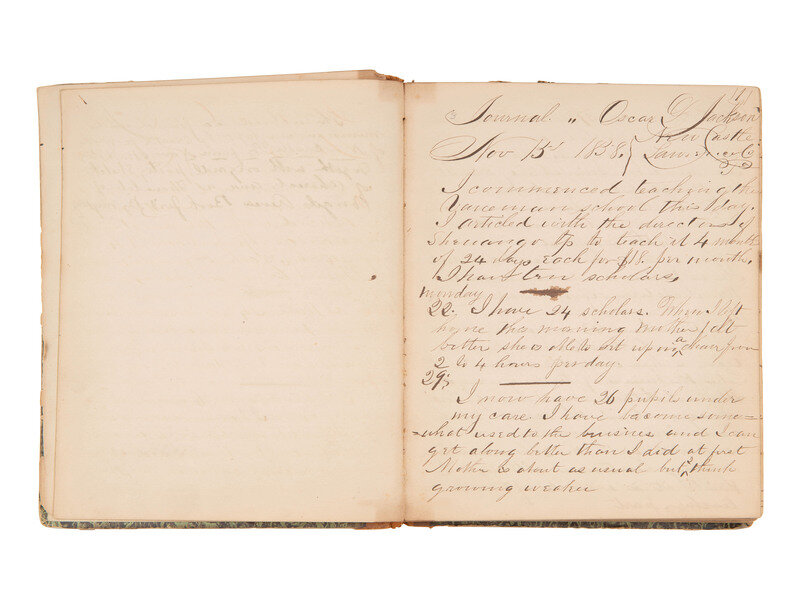 Journal " Oscar L Jackson
New Castle
Nov 15 1858. Lawrence Co
I commenced teaching the
school this day.
I articled with the directors of
Shenango Tp to teach it 4 months
of 24 days each for $18. per month.
I have ten scholars.
Monday
22. I have 24 scholars. When I left
home this morning Mother felt
better she is able to set up in a chair from
2 to 4 hours per day.
29.
I now have 26 pupils under
my care. I have become some=
=what used to the business and I can
get along better than I did at first
Mother is about as usual but I think
growing weaker